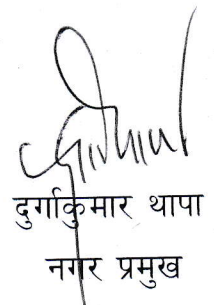 दुर्गाकुमार थापा
नगर प्रमुख